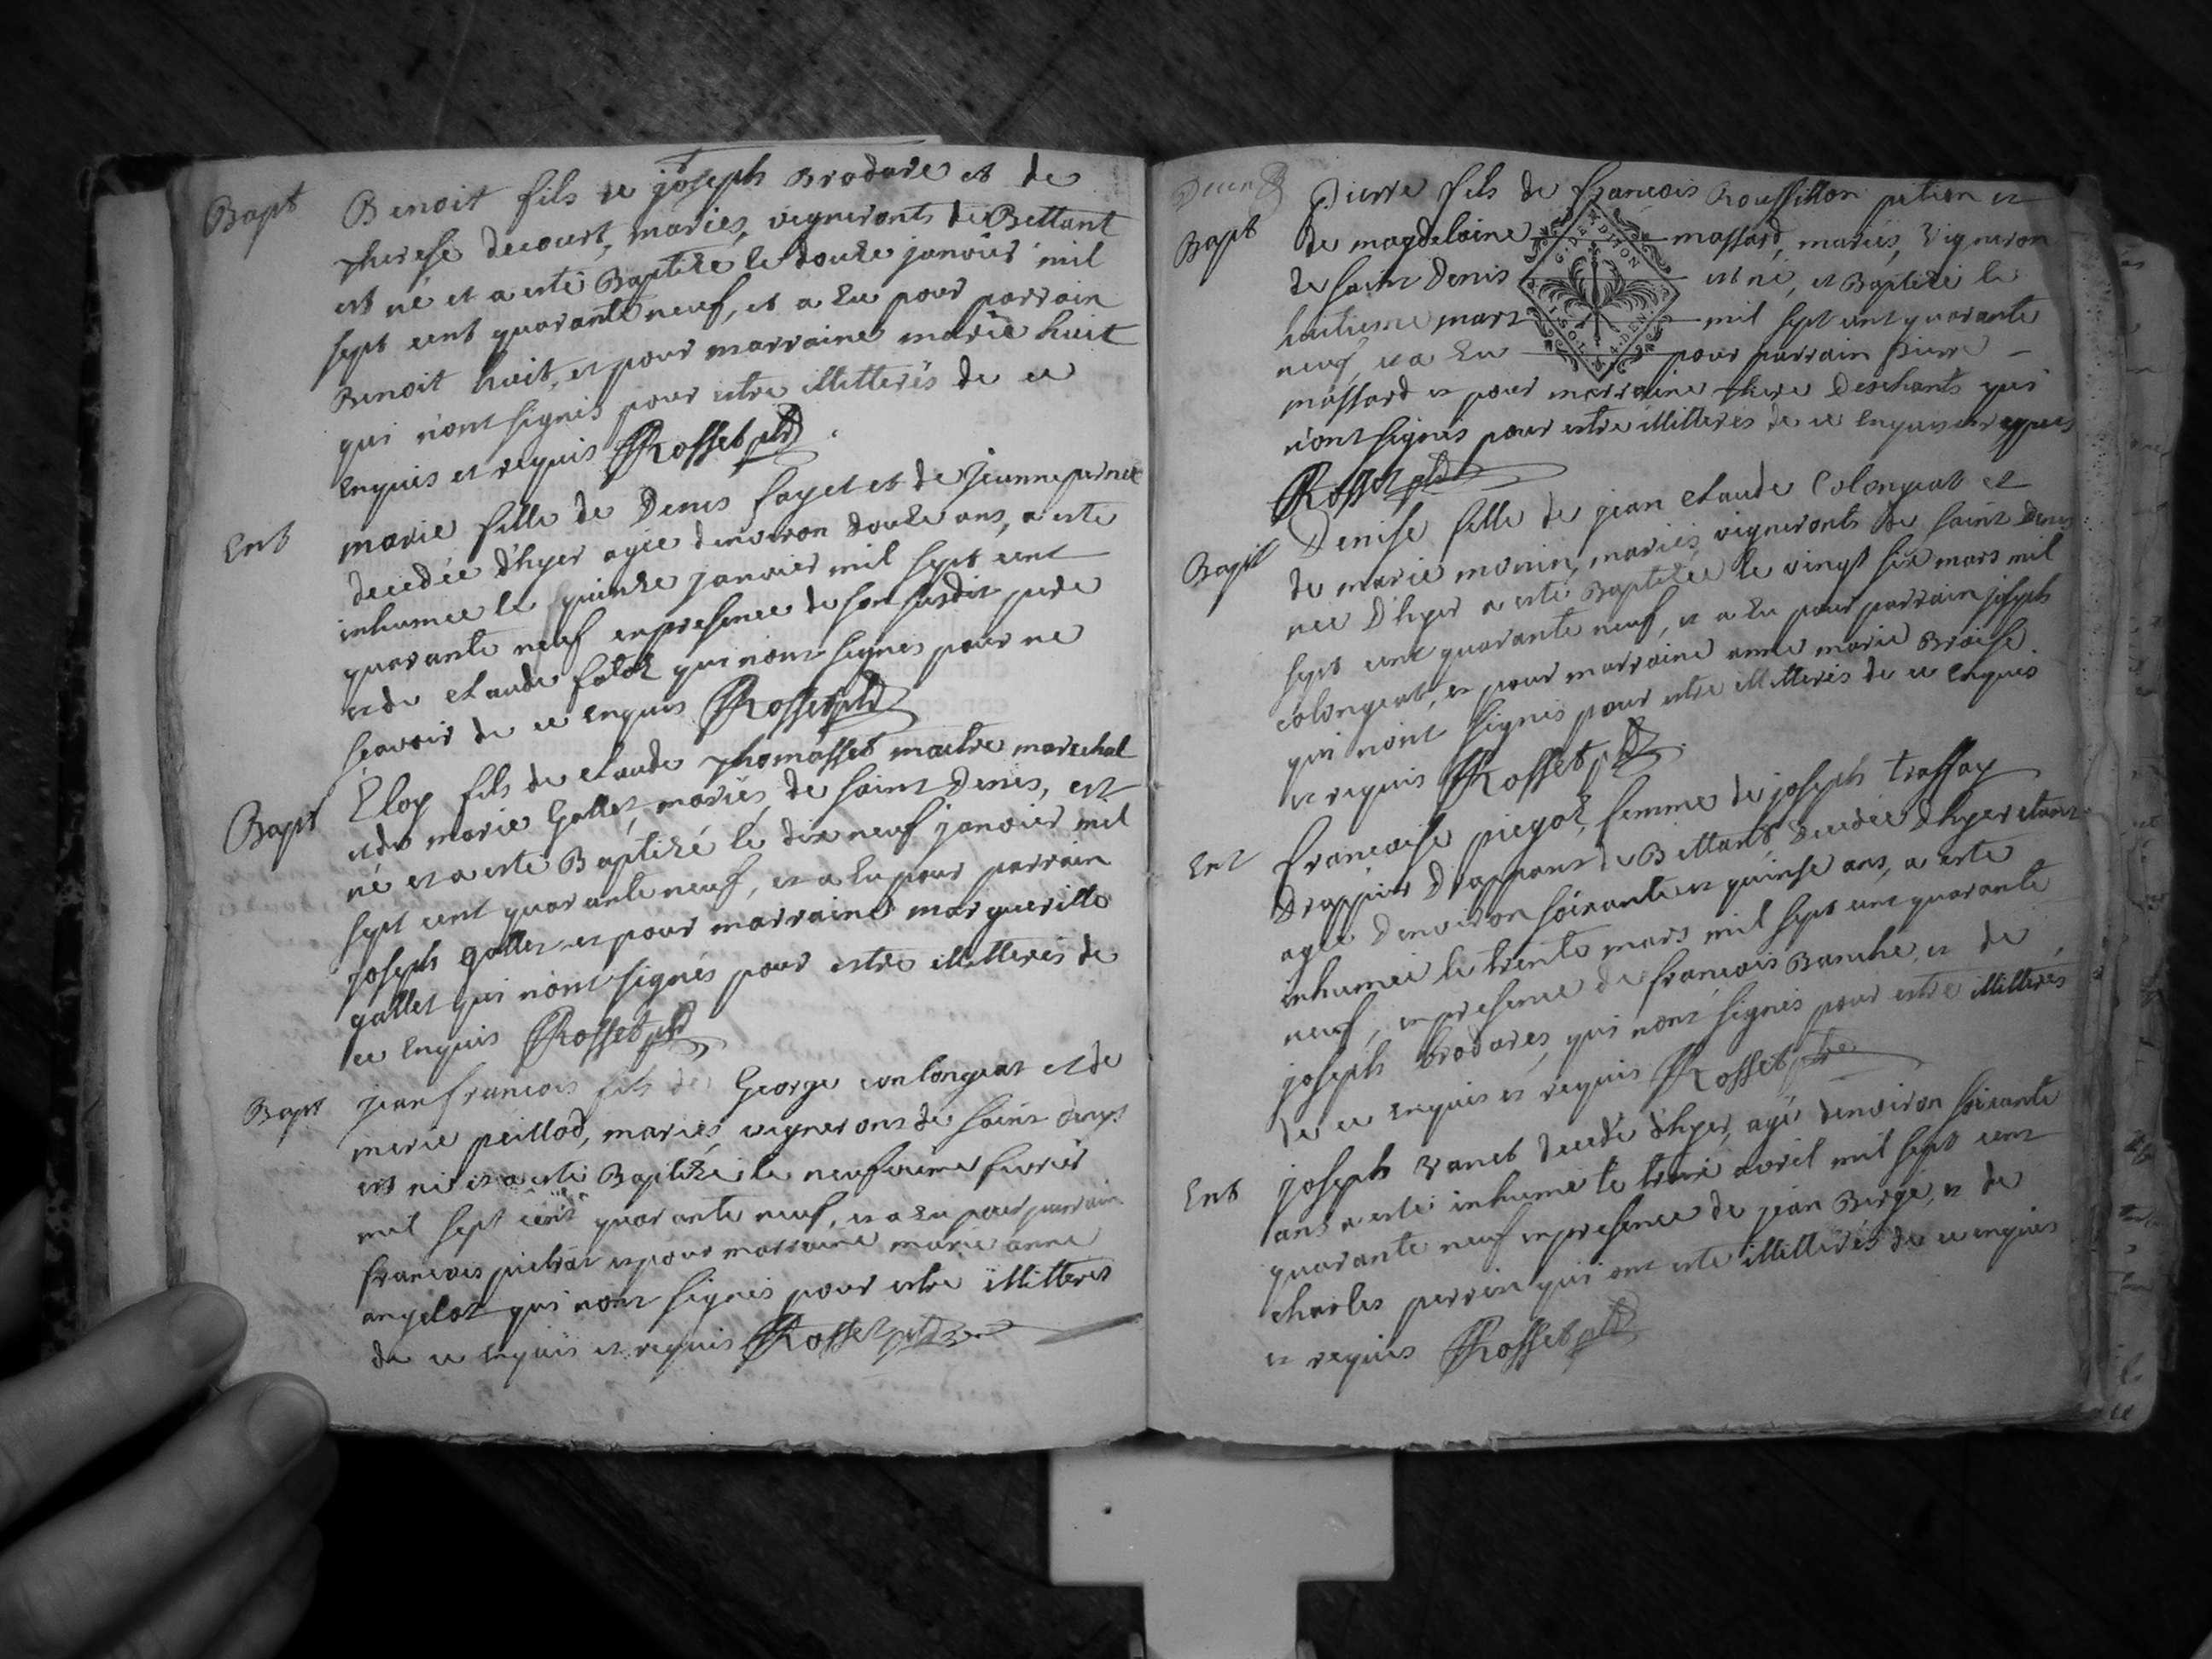 Bapt Benoit fils de joseph Brodare et de
therese decourt, mariés, vigneronts de Bettant
est né et a esté Baptize le douze janvier mil
sept cent quarante neuf, et a Eu pour parrain
Benoit huit, et pour marraine marie huit
qui nont signés pour estre illitterés de ce
enquis et requis Rosset ptre
Ent marie fille de Denis fayet et de jeanne pernet
decedée d'hyer agée denviron douze ans, a esté
inhumee le quinze janvier mil sept cent
quarante neuf en presence de son susdit pere
et de claude qui nont signes pour ne
scavoir de ce enquis Rosset ptre
Bapt Eloy fils de claude thomasset maitre marechal
et de marie Gallet, mariés, de saint Denis, est
né et a esté Baptizé le dix neuf janvier mil
sept cent quarante neuf, et a Eu pour parrain
joseph gallet et pour marraine margueritte
gallet qui nont signés pour estre illitterés de
ce enquis Rosset ptre
Bapt jean francois fils de George conlongeat et de
marie peillod, mariés, vignerons de saint denys
est né et a esté Baptizé le neufvieme fevrier
mil sept cent quarante neuf, et a Eu pour parrain
francois et pour marraine marie anne
angelot qui nont signés pour estre illitteres
de ce enquis et requis Rosset ptre
Bapt Pierre fils de francois Roussillon pition et
de magdelaine massard, mariés, vigneron
G. DIJON
de saint Denis est né, et Baptizé le
huitieme mars mil sept cent quarante
neuf, et a Eu pour parrain pierre
massard et pour marraine Deschants qui
n'ont signés pour estre illitteres de ce enquis et requis
Rosset ptre
Bapt Denise fille de jean claude Colongeat et
de marie monin, mariés, vigneronts de saint Denis
née d'hyer a esté Baptizée le vingt six mars mil
sept cent quarante neuf, et a Eu pour parrain joseph
colongeat, et pour marraine anne marie Braise
qui n'ont signés pour estre illitterés de ce enquis
et requis Rosset ptre
Ent francoise piegoz, femme de joseph trassay
drappier drappant de Bettant decedée d'hyer etant
agée denviron soixante et quinse ans, a esté
inhumée le trente mars mil sept cent quarante
neuf, en presence de francois Banche, et de
joseph brodares, qui nont signés pour estre illitterés
de ce enquis et requis Rosset ptre
Ent joseph vanet decedé d'hyer, agé denviron soixante
ans a esté inhumé le avril mil sept cent
quarante neuf en presence de jean Bergé, et de
charles perrin qui ont esté illitterés de ce enquis
et requis Rosset ptre